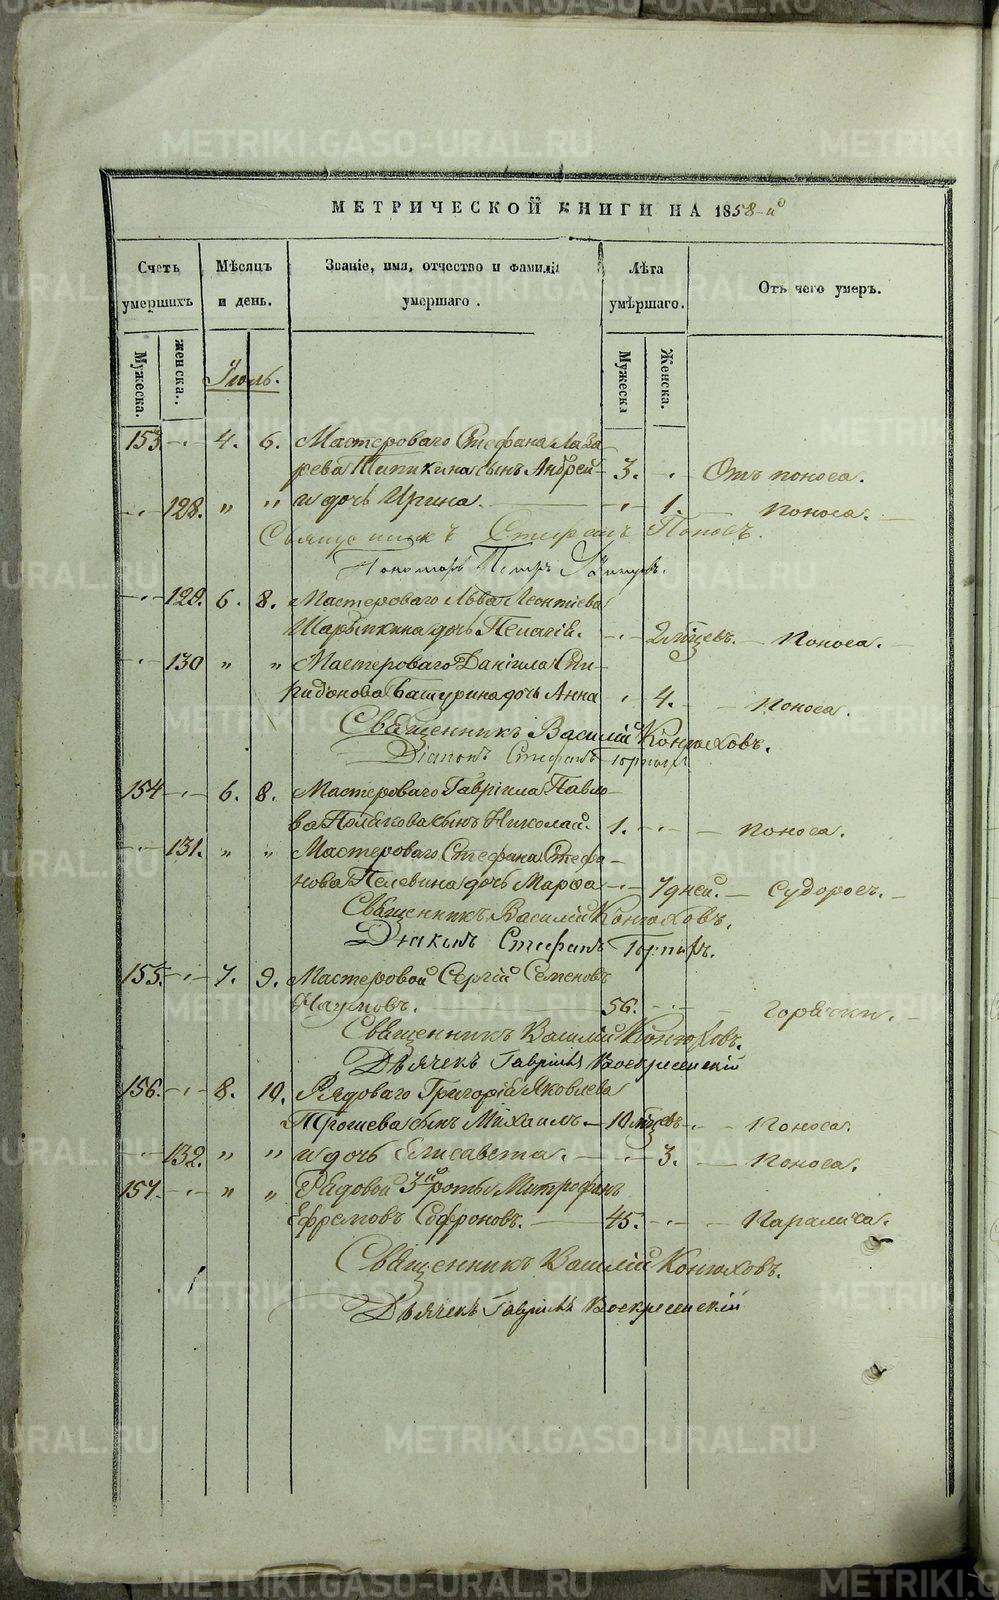 МЕТРИЧЕСКОЙ КНИГИ НА 1858-й
Счетъ умершихъ
Мѣсяцъ и день.
Званіе, имя, отчество и фамилія умершаго.
Лѣта умѣршаго.
Отъ чего умеръ.
Мужеска.
женска.
Мужеска
Женска.
Іюль.
153. 4. 6. Мастероваго Стефана Лаза-
рева Шипикина сынъ Андрей 3. Отъ поноса.
128. " " и дочь Ирина. 1. Поноса.
Священникъ Стефанъ Поповъ.
Пономарь Петръ
129. 6. 8. Мастероваго Льва Леонтіева
Шарыпкина дочь Пелагія. 2 мѣсецъ. Поноса.
130 " " Мастероваго Даніила Спи-
ридонова Батурина дочь Анна 4. Поноса.
Священникъ Василій Конюховъ.
Діаконъ Стефанъ
154 6. 8. Мастероваго Гавріила Павло-
ва Полякова сынъ Николай. 1. Поноса.
131. " " Мастероваго Стефана Стефа-
нова Пелевина дочь Марѳа 7 дней. Судорогъ.
Священникъ Василій Конюховъ.
Діаконъ Стефанъ
155. 7. 9. Мастеровой Сергій Семеновъ
Наумовъ. 56. Горячки.
Священникъ Василій Конюховъ.
Дьячекъ Гавріилъ Воскресенскій
156. 8. 10. Рядоваго Григорія Яковлева
Трошева сынъ Михаилъ 10 мѣсецъ. Поноса.
132. " " и дочь Елисавета. 3. Поноса.
157. " " Рядовой 3й роты Митрофанъ
Ефремовъ Софроновъ. 45. Паралича.
Священникъ Василій Конюховъ.
Дьячекъ Гавріилъ Воскресенскій
METRIKI.GASO-URAL.RU